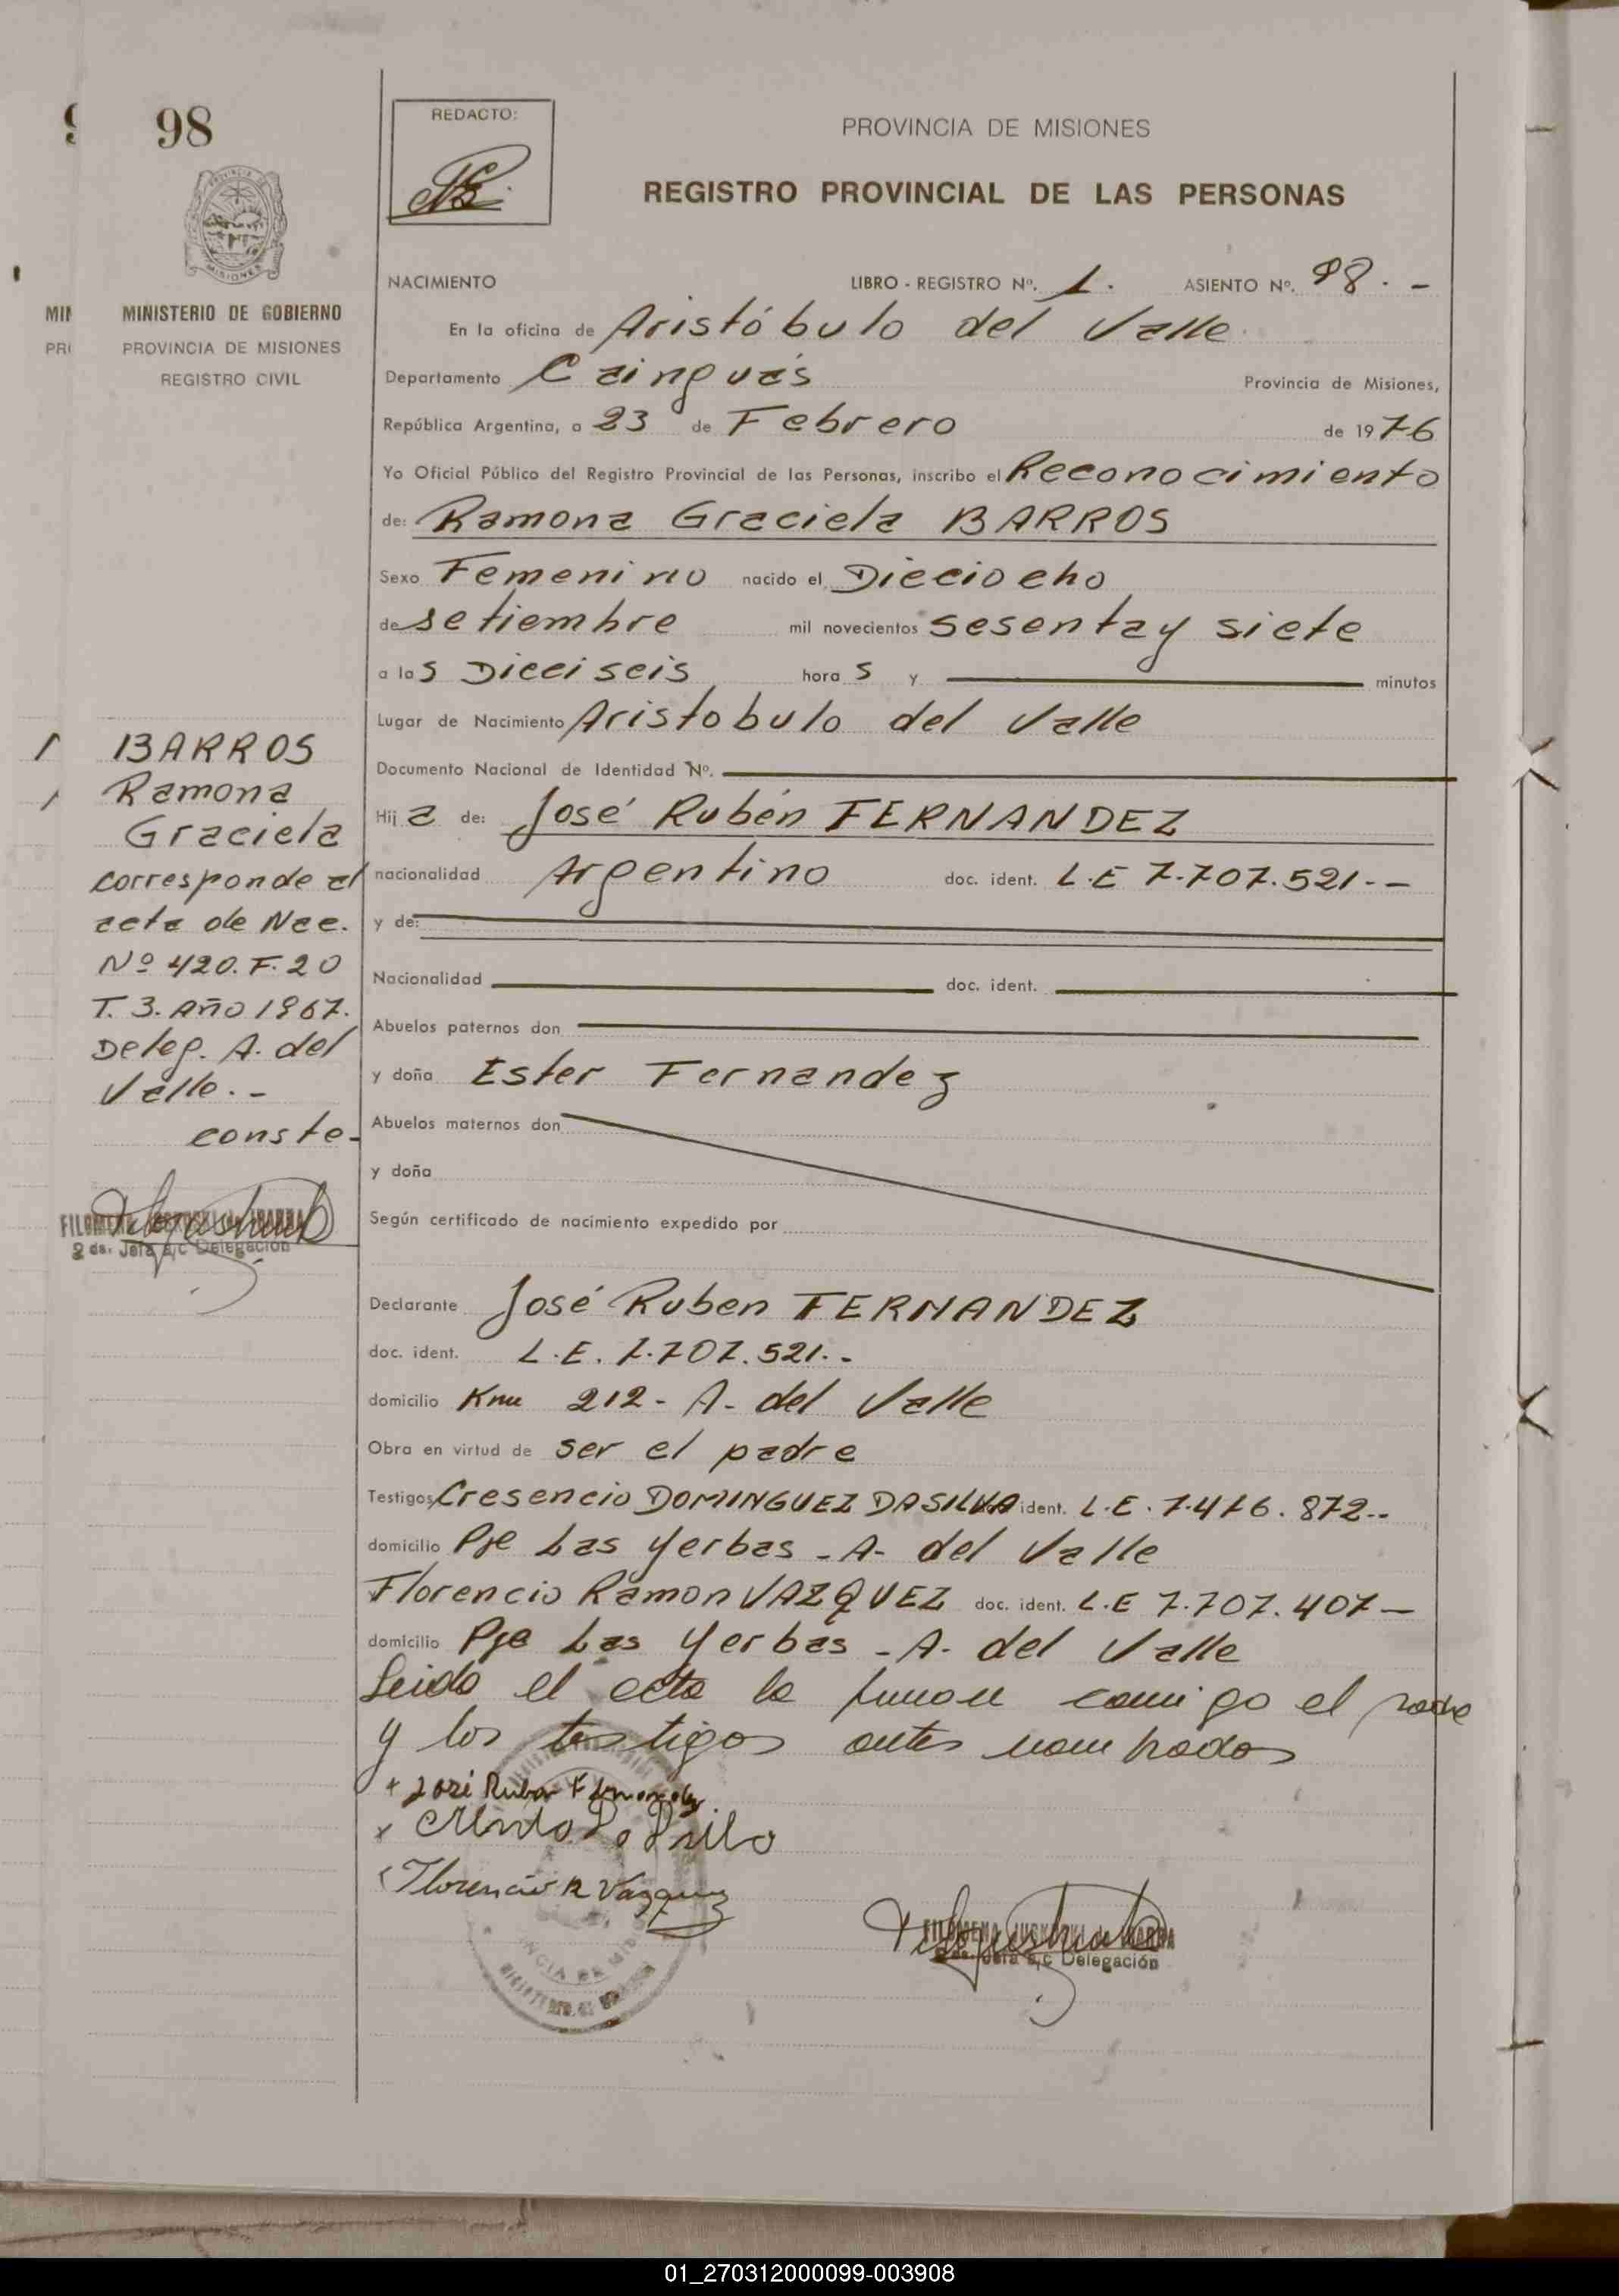 98
REDACTO:
PROVINCIA DE MISIONES
REGISTRO PROVINCIAL DE LAS PERSONAS
MINISTERIO DE GOBIERNO
PROVINCIA DE MISIONES
REGISTRO CIVIL
NACIMIENTO LIBRO - REGISTRO Nº. 1. ASIENTO Nº. 98. -
En la oficina de Aristóbulo del Valle
Departamento Cainguás Provincia de Misiones,
República Argentina, a 23 de Febrero de 1976
Yo Oficial Público del Registro Provincial de las Personas, inscribo el Reconocimiento
de: Ramona Graciela BARROS
Sexo Femenino nacido el Dieciocho
de setiembre mil novecientos sesenta y siete
a las Dieciseis horas y minutos
Lugar de Nacimiento Aristobulo del Valle
Documento Nacional de Identidad Nº.
Hija de: José Rubén FERNANDEZ
nacionalidad Argentino doc. ident. L.E 7.707.521.--
y de:
Nacionalidad doc. ident.
Abuelos paternos don
y doña Ester Fernandez
Abuelos maternos don
y doña
Según certificado de nacimiento expedido por
Declarante José Ruben FERNANDEZ
doc. ident. L.E. 7.707.521.-
domicilio Km 212 - A. del Valle
Obra en virtud de ser el padre
Testigos Cresencio DOMINGUEZ DASILVA ident. L.E. 7.476.872--
domicilio Pje Las Yerbas - A. del Valle
Florencio Ramon VAZQUEZ doc. ident. L.E 7.707.407-
domicilio Pje Las Yerbas - A. del Valle
Leida el acta la firman conmigo el padre
y los testigos antes nombrados
BARROS
Ramona
Graciela
corresponde al
acta de Nac.
Nº 420. F. 20
T. 3. Año 1967.
Deleg. A. del
Valle. -
conste-
FILOMENA de IBARRA
2 da. Jefa a/c Delegación
+ José Ruben Fernandez
Florencio R Vazquez
FILOMENA de IBARRA
2 da. Jefa a/c Delegación
01_270312000099-003908